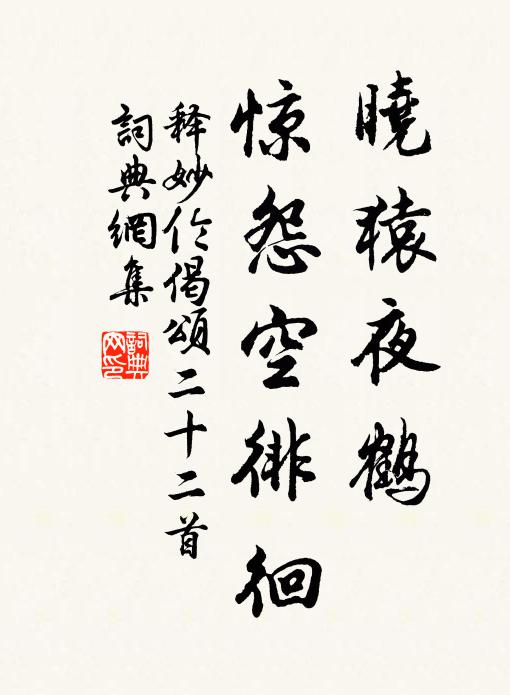 曉猿夜鶴
惊怨空徘徊
释妙伦偈頌二十二首
詞典網集
詞典网印